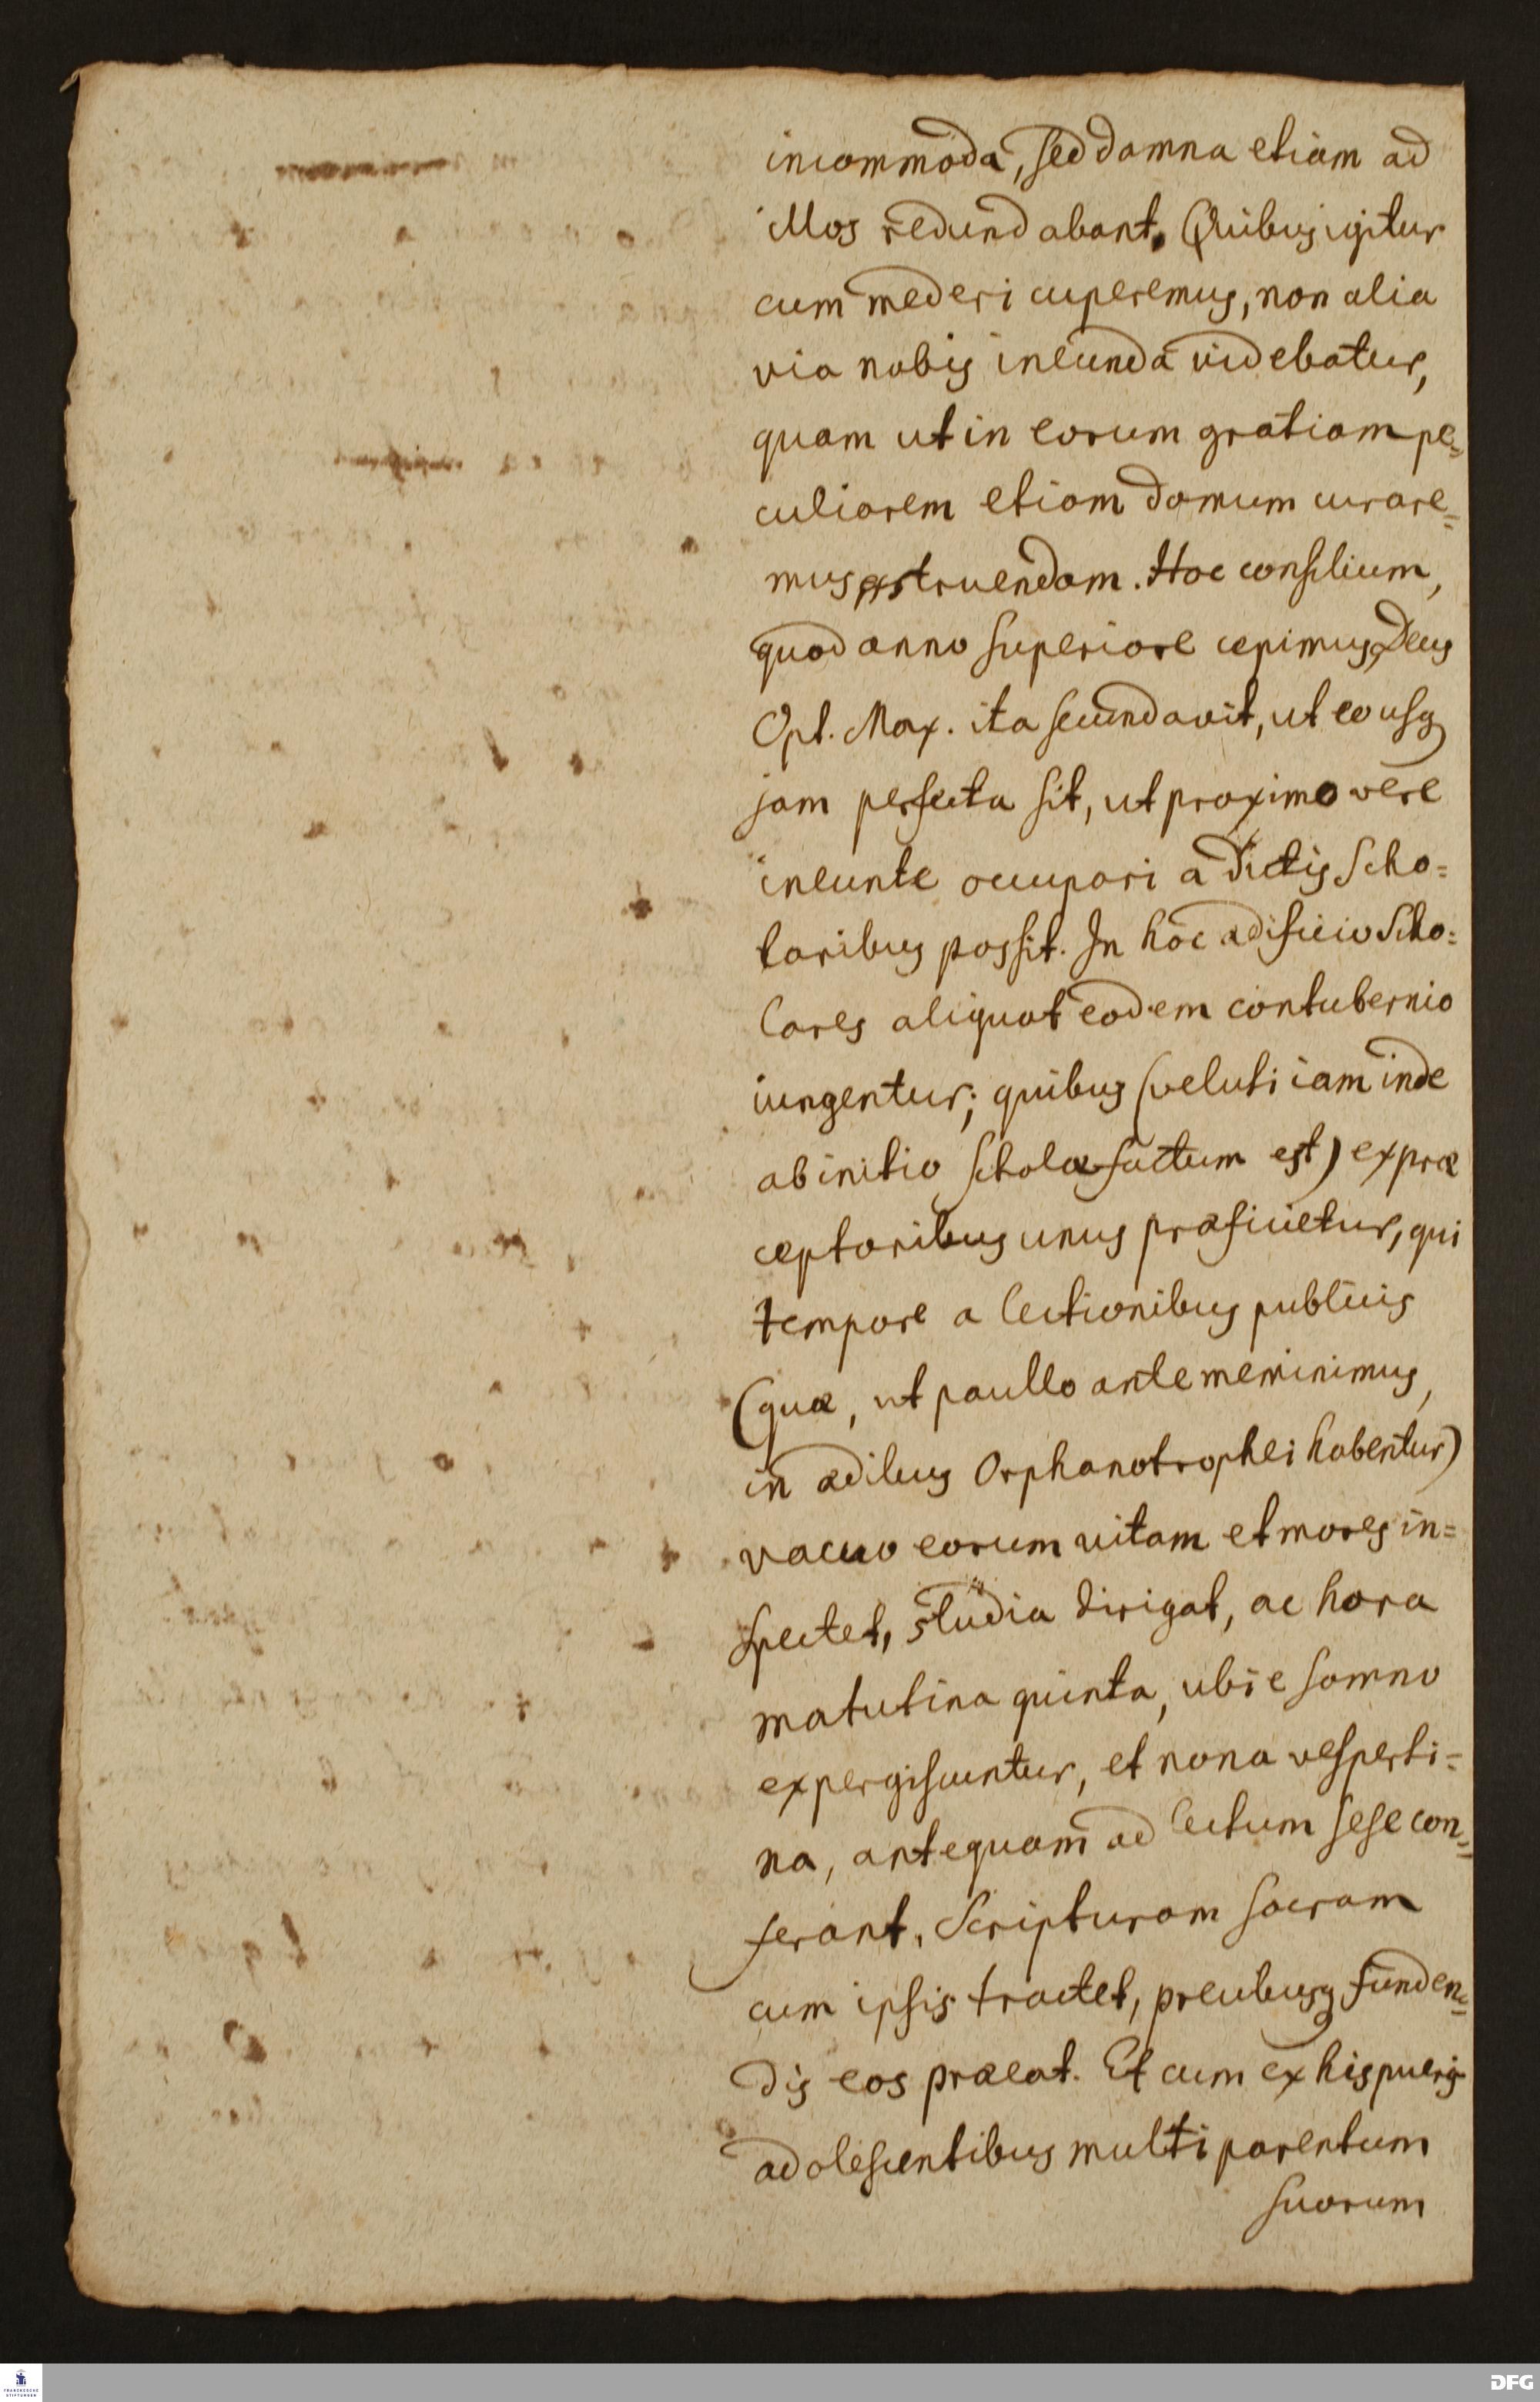 incommoda, sed damna etiam ad
illos redundabant. Quibus igitur
cum mederi cuperemus, non alia
via nobis ineunda videbatur,
quam ut in eorum gratiam pe=
culiarem etiam domum curare=
mus exstruendam. Hoc consilium,
quod anno superiore cepimus, Deus
Opt. Max. ita secundavit, ut eousq
jam perfecta sit, ut proximo vere
ineunte occupari a dictis Scho=
laribus possit. In hoc ædificio Scho=
lares aliquot eodem contubernio
iungentur; quibus (veluti iam inde
ab initio scholæ factum est) ex præ
ceptoribus unus præficietur, qui
tempore a lectionibus publicis
(quæ, ut paullo ante meminimus,
in ædibus Orphanotrophei habentur)
vacuo eorum vitam et mores in=
spectet, studia dirigat, ac hora
matutina quinta, ubi e somno
expergiscuntur, et nona vesperti=
na, antequam ad lectum sese con=
ferant, Scripturam sacram
cum ipsis tractet, precibusq funden=
dis eos præeat. Et cum ex his pueris
adolescentibus multi parentum
suorum
FRANCKESCHE
STIFTUNGEN
DFG